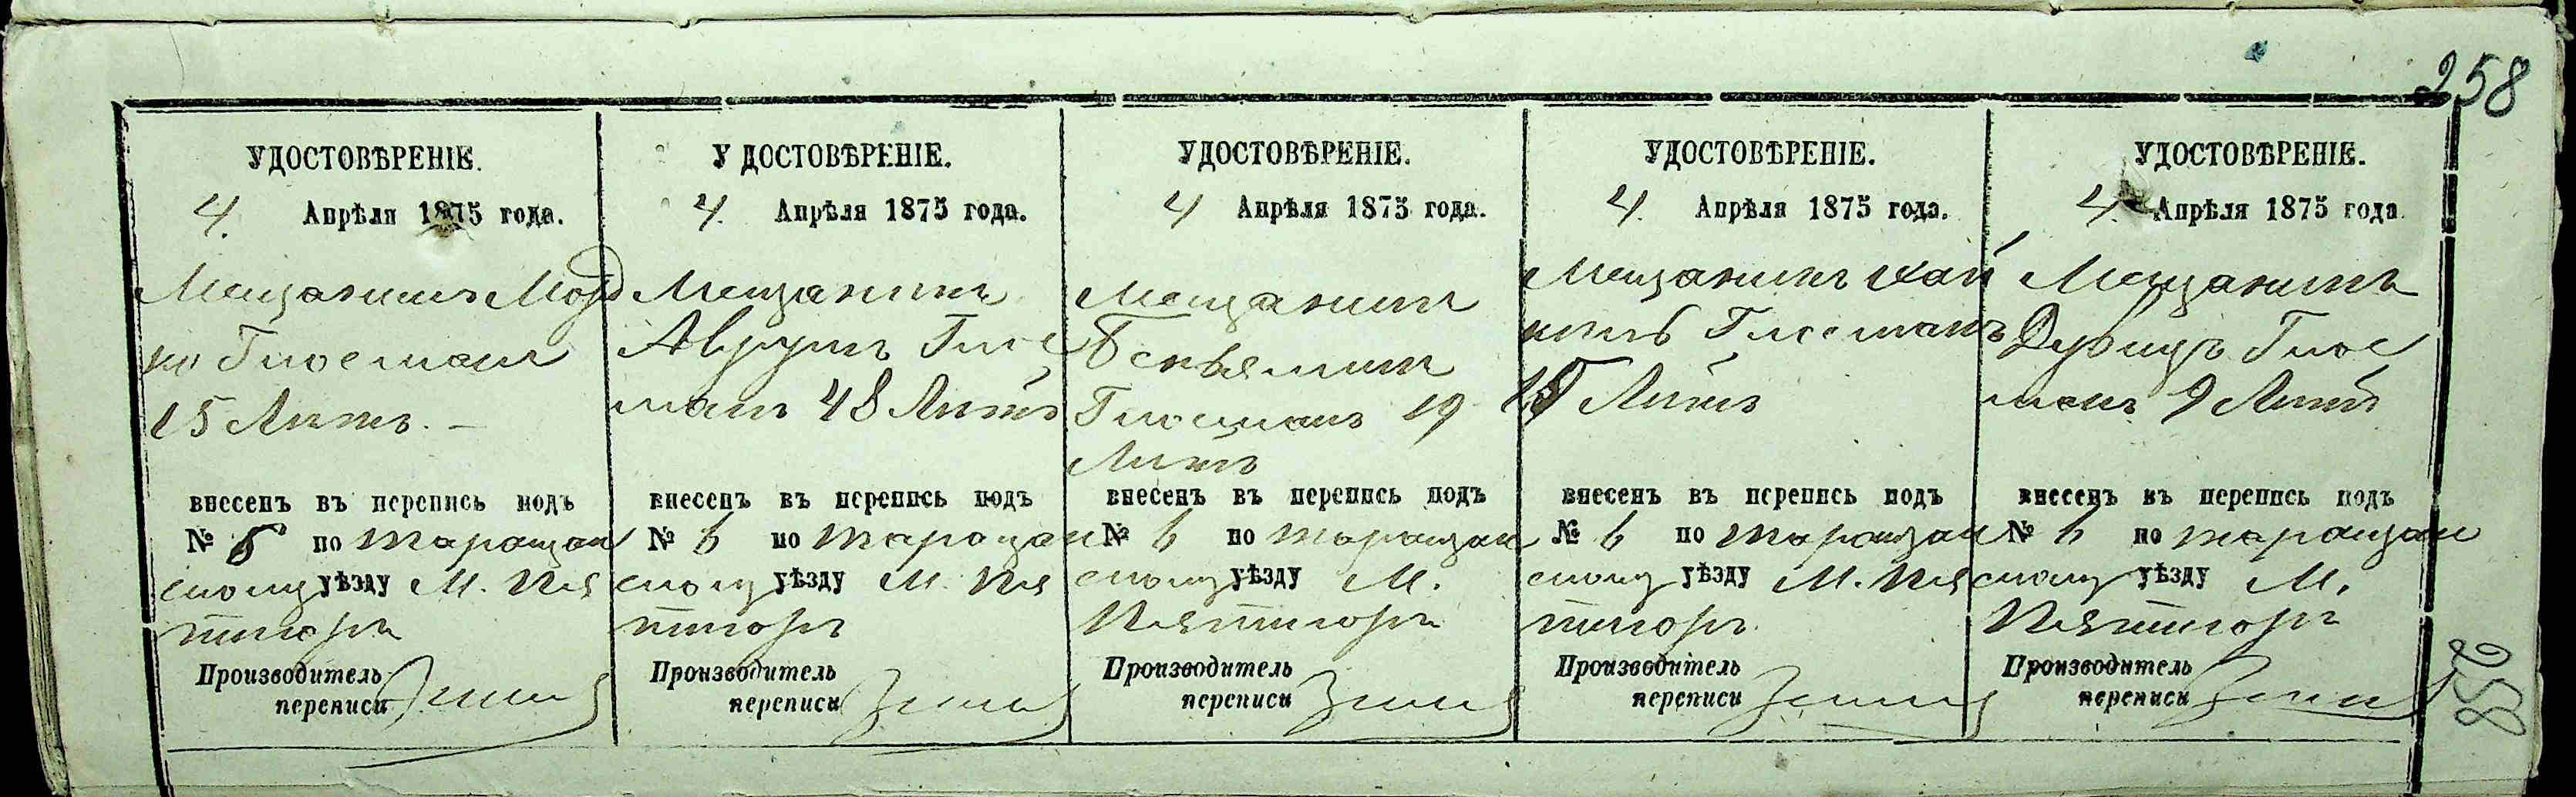 258
УДОСТОВѢРЕНІЕ.
4. Апрѣля 1875 года.
Мещанинъ Мор
ко Глосманъ
15 Лѣтъ. —
внесенъ въ перепись подъ
№ 6 по Таращан
скому уѣзду М. Пя
тигоръ
Производитель
переписи
У ДОСТОВѢРЕНІЕ.
4. Апрѣля 1875 года.
Мещанинъ
Аврумъ Глос
манъ 48 Лѣтъ
внесенъ въ перепись подъ
№ 6 по Таращан
скому уѣзду М. Пя
тигоръ
Производитель
переписи
УДОСТОВѢРЕНІЕ.
4 Апрѣля 1875 года.
Мещанинъ
Беньяминъ
Глосманъ 19
Лѣтъ
внесенъ въ перепись подъ
№ 6 по Таращан
скому уѣзду М.
Пятигоръ
Производитель
переписи
УДОСТОВѢРЕНІЕ.
4. Апрѣля 1875 года.
Мещанинъ
Глосманъ
Лѣтъ
внесенъ въ перепись подъ
№ 6 по Таращан
скому уѣзду М. Пя
тигоръ
Производитель
переписи
УДОСТОВѢРЕНІЕ.
4. Апрѣля 1875 года.
Мещанинъ
Дувидъ Глос
манъ 9 Лѣтъ
внесенъ въ перепись подъ
№ 6 по Таращан
скому уѣзду М.
Пятигоръ
Производитель
переписи
258